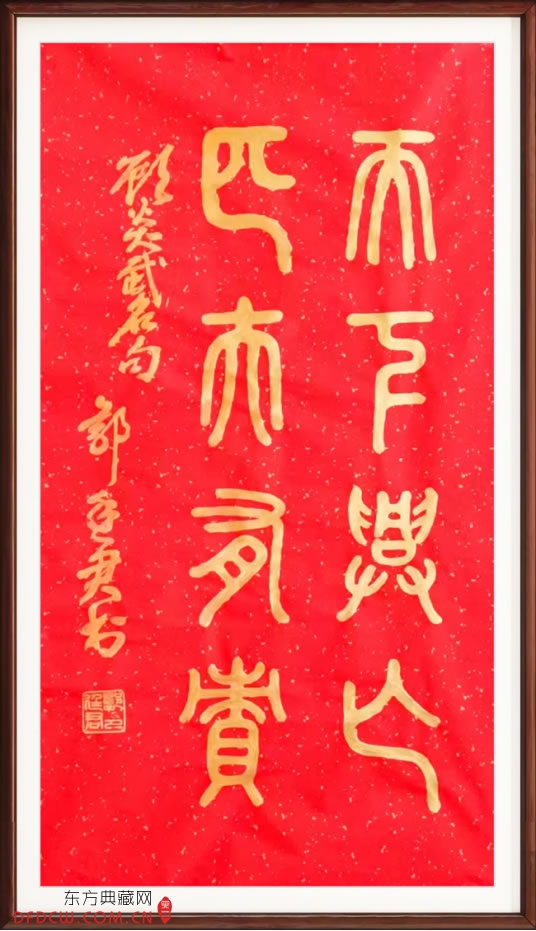 天下興亡
匹夫有責
顾炎武名句
郭
君书
东方典藏网
DFDCW.COM.CN